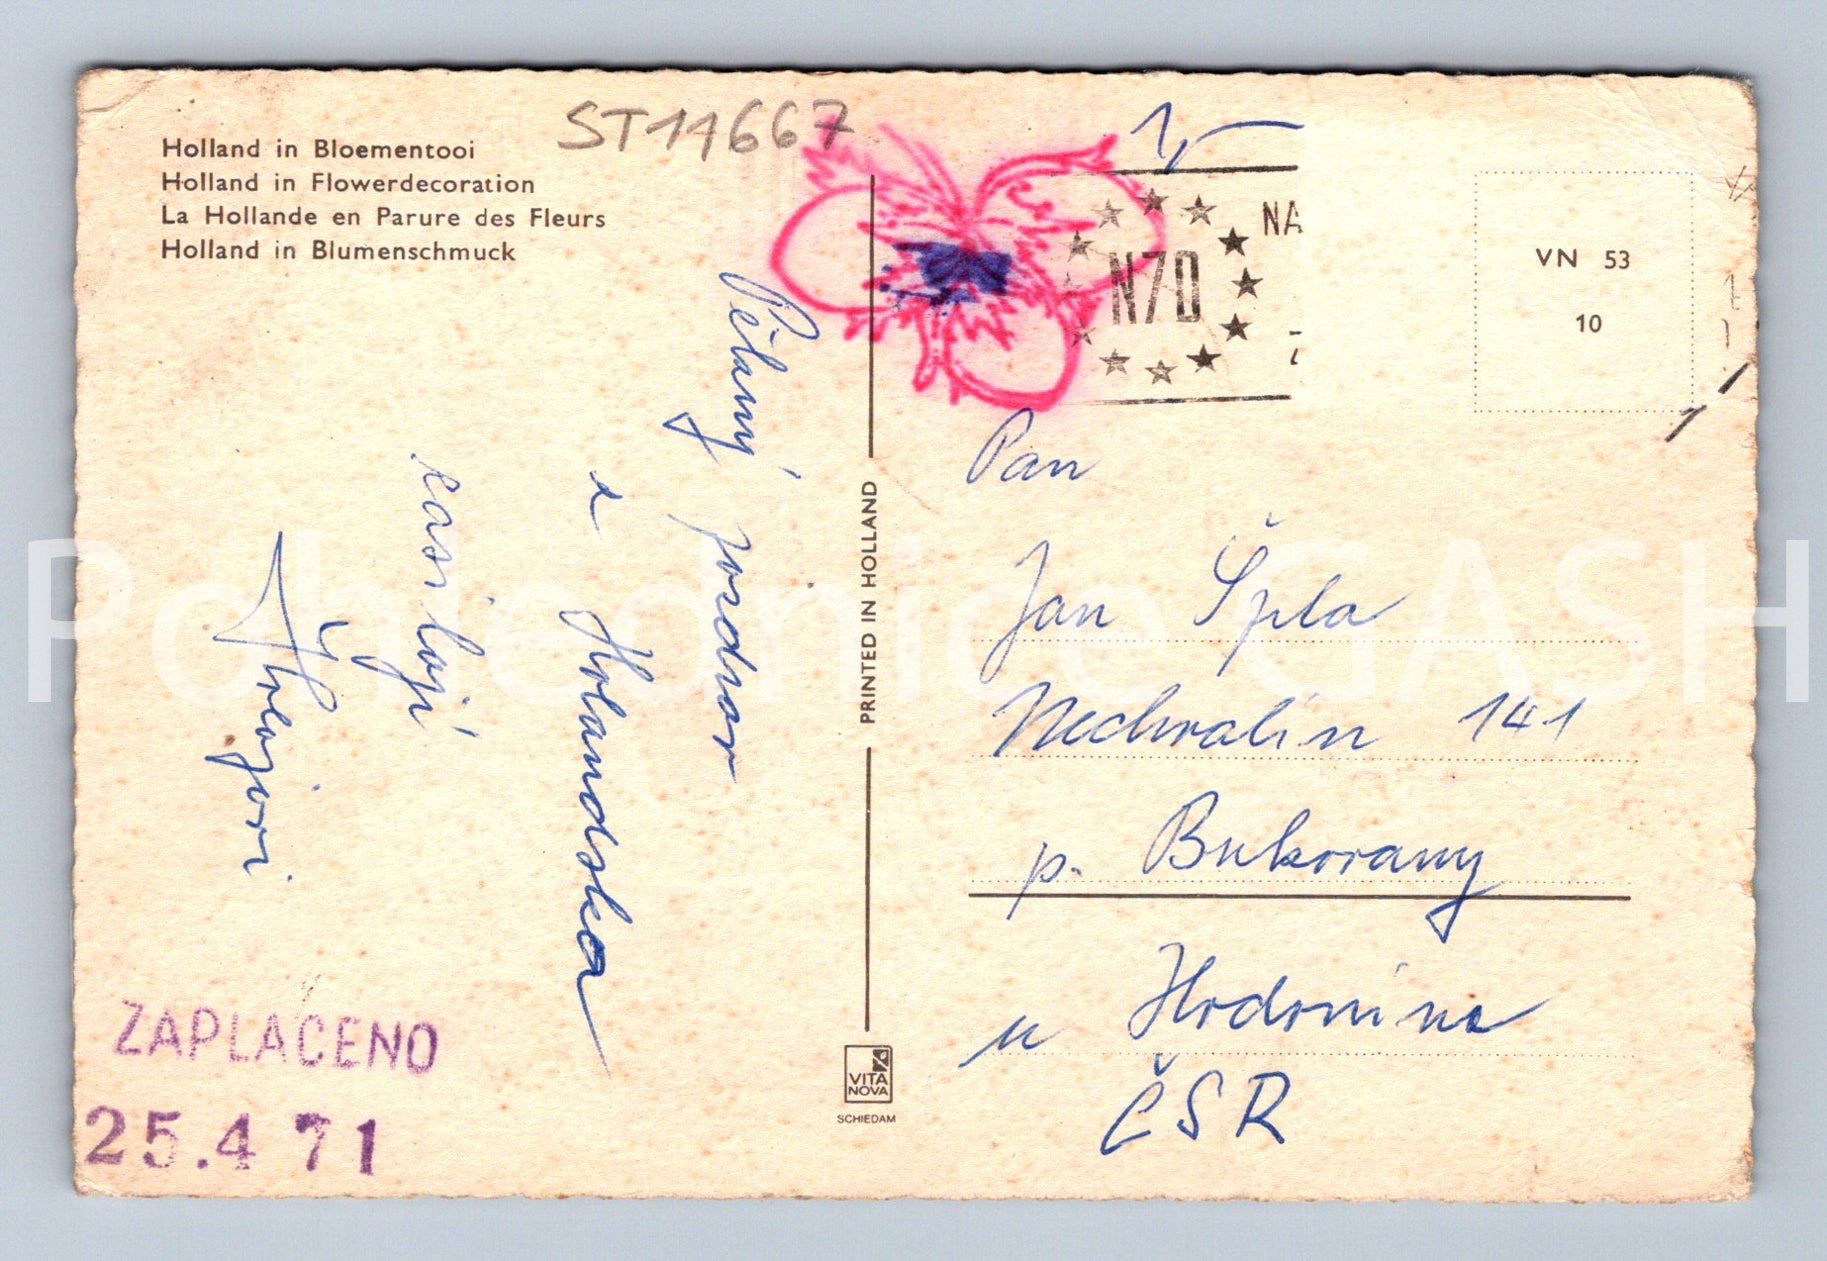 Holland in Bloementooi
Holland in Flowerdecoration
La Hollande en Parure des Fleurs
Holland in Blumenschmuck
ST11667
1,-
NA
N70
7
VN 53
10
pozdrav
z Holandska
zasílají
Pan
Jan Špla
Nechvalín 141
p. Bukovany
u Hodonína
ČSR
PRINTED IN HOLLAND
VITA
NOVA
SCHIEDAM
ZAPLACENO
25.4 71
Pohlednice GASH